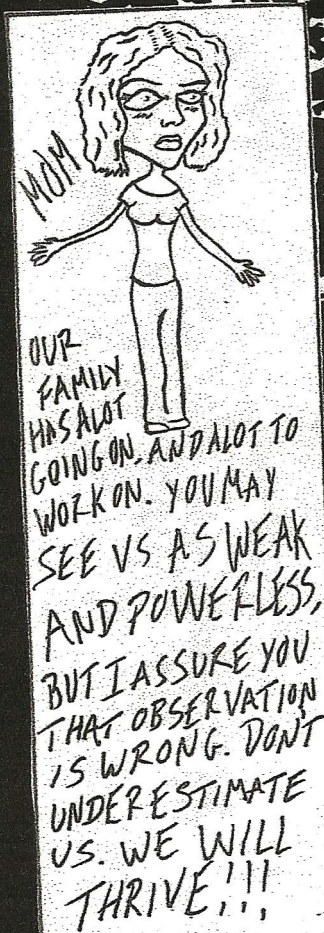 MOM
OUR
FAMILY
HAS ALOT
GOING ON, AND ALOT TO
WORK ON. YOU MAY
SEE US AS WEAK
AND POWERLESS,
BUT I ASSURE YOU
THAT OBSERVATION
IS WRONG. DON'T
UNDERESTIMATE
US. WE WILL
THRIVE!!!